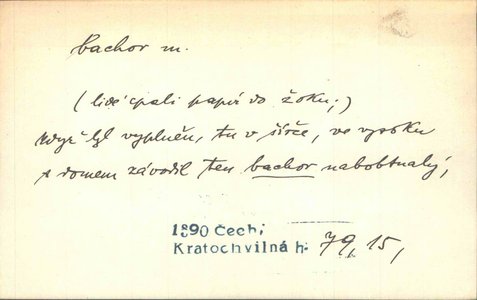 bachor m.
(lidé cpali papír do žoku;)
když byl vyplněn, tu v šířce, ve vysoku
s domem závodil ten bachor nabobtnalý;
1890 Čech,
Kratochvilná h. 79, 15,